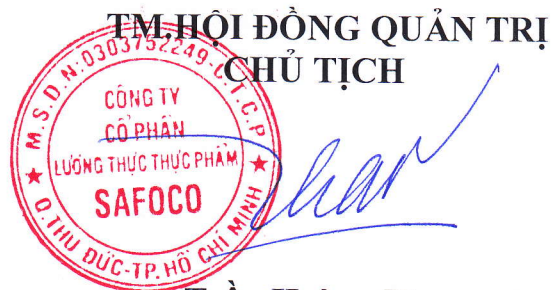 TM.HỘI ĐỒNG QUẢN TRỊ
CHỦ TỊCH
M.S.D.N:0303752249-C.T.C.P
CÔNG TY
CỔ PHẦN
LƯƠNG THỰC THỰC PHẨM
SAFOCO
Q.THỦ ĐỨC-TP.HỒ CHÍ MINH